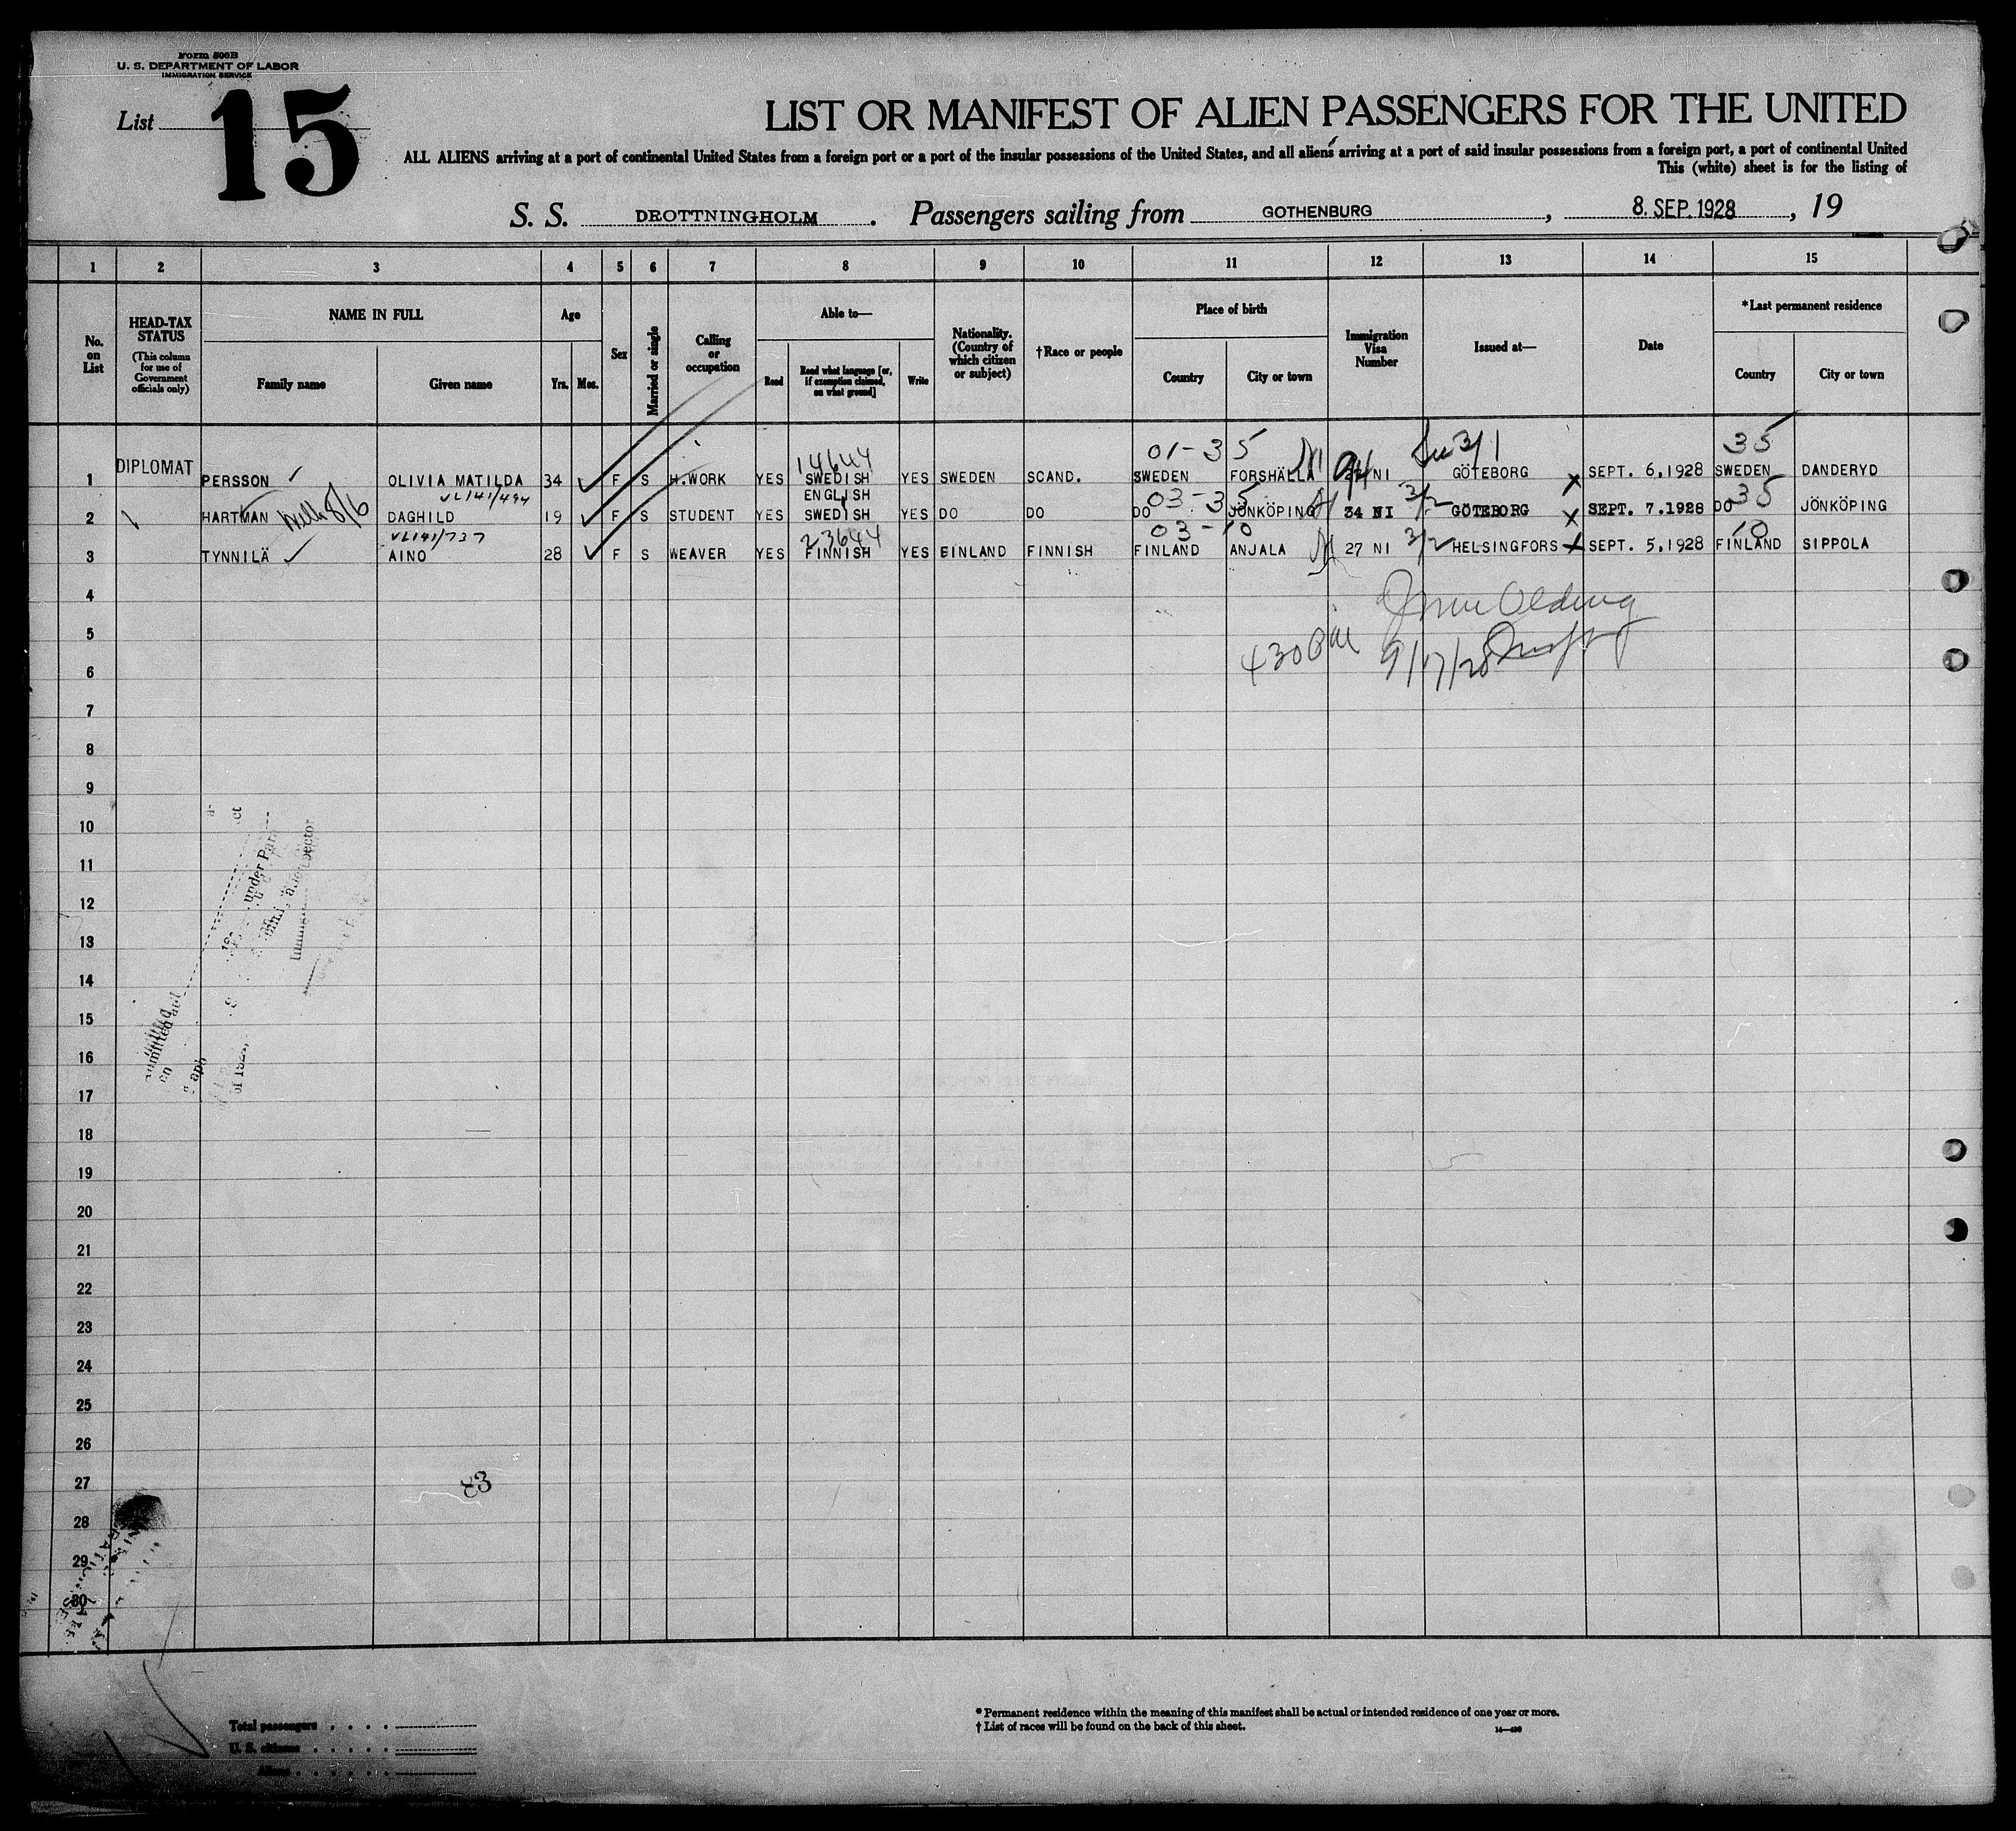 Form 500B
U. S. DEPARTMENT OF LABOR
IMMIGRATION SERVICE
List 15
LIST OR MANIFEST OF ALIEN PASSENGERS FOR THE UNITED
ALL ALIENS arriving at a port of continental United States from a foreign port or a port of the insular possessions of the United States, and all aliens arriving at a port of said insular possessions from a foreign port, a port of continental United
This (white) sheet is for the listing of
S. S. DROTTNINGHOLM . Passengers sailing from GOTHENBURG , 8. SEP. 1928 , 19
1 2 3 4 5 6 7 8 9 10 11 12 13 14 15
No. on List
HEAD-TAX STATUS
(This column for use of Government officials only)
NAME IN FULL
Family name Given name
Age
Yrs. Mos.
Sex
Married or single
Calling or occupation
Able to—
Read Read what language [or, if exemption claimed, on what ground] Write
Nationality. (Country of which citizen or subject)
†Race or people
Place of birth
Country City or town
Immigration Visa Number
Issued at—
Date
*Last permanent residence
Country City or town
14644 01-35 3/1 35
1 DIPLOMAT PERSSON OLIVIA MATILDA 34 F S H.WORK YES SWEDISH YES SWEDEN SCAND. SWEDEN FORSHÄLLA NI GÖTEBORG SEPT. 6,1928 SWEDEN DANDERYD
VL141/494 ENGLISH 03-35 3/2 35
2 HARTMAN 8/6 DAGHILD 19 F S STUDENT YES SWEDISH YES DO DO DO JÖNKÖPING 34 NI GÖTEBORG SEPT. 7.1928 DO JÖNKÖPING
VL141/737 23644 03-10 3/2 10
3 TYNNILÄ AINO 28 F S WEAVER YES FINNISH YES FINLAND FINNISH FINLAND ANJALA 27 NI HELSINGFORS SEPT. 5,1928 FINLAND SIPPOLA
4
5
430 9/17/28
6
7
8
9
10
11
12
13
14
15
16
17
18
19
20
21
22
23
24
25
26
27 83
28
29
30
Total passengers
U. S. citizens
Aliens
* Permanent residence within the meaning of this manifest shall be actual or intended residence of one year or more.
† List of races will be found on the back of this sheet.